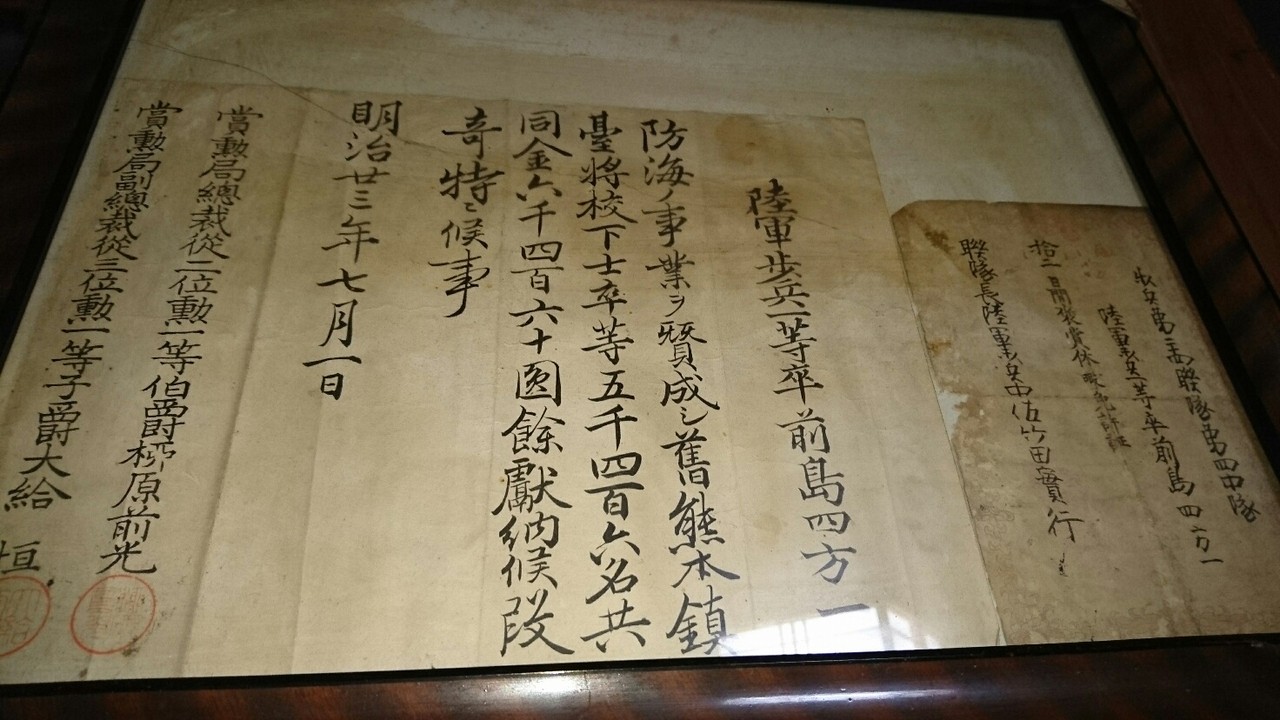 歩兵第二十三聯隊第四中隊
陸軍歩兵一等卒前島四方一
拾一日間褒賞休暇免許証
聯隊長陸軍歩兵中佐竹田實行
陸軍歩兵一等卒前島四方一
防海ノ事業ヲ賛成シ舊熊本鎮
臺將校下士卒等五千四百六名共
同金六千四百六十圓餘獻納候段
奇特ニ候事
明治廿三年七月一日
賞勲局總裁從二位勲一等伯爵柳原前光
賞勲局副總裁從三位勲一等子爵大給恒